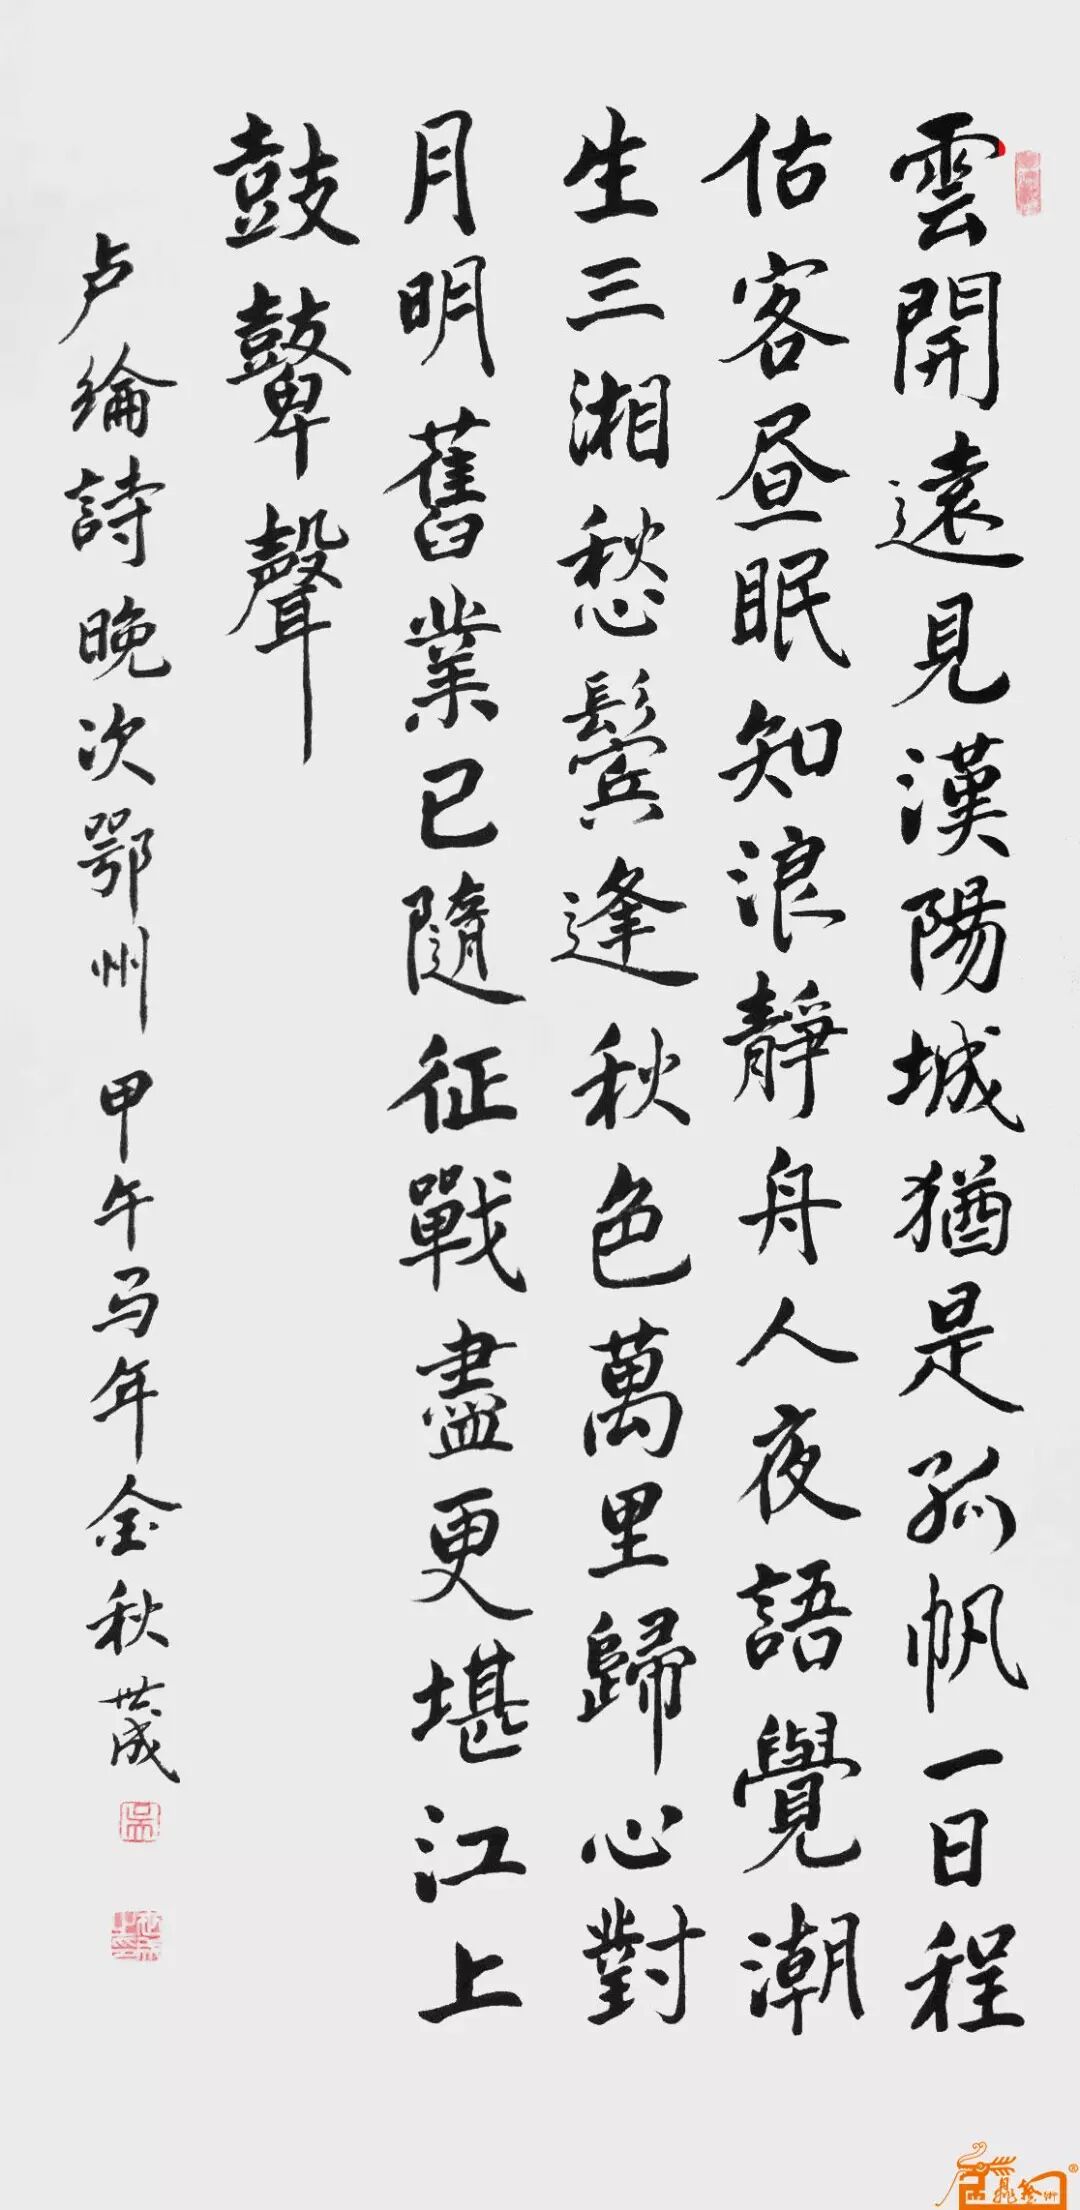 雲開遠見漢陽城猶是孤帆一日程
估客昼眠知浪靜舟人夜語覺潮
生三湘愁鬢逢秋色萬里歸心對
月明舊業已隨征戰盡更堪江上
鼓鼙聲
卢綸詩晚次鄂州甲午马年金秋世成